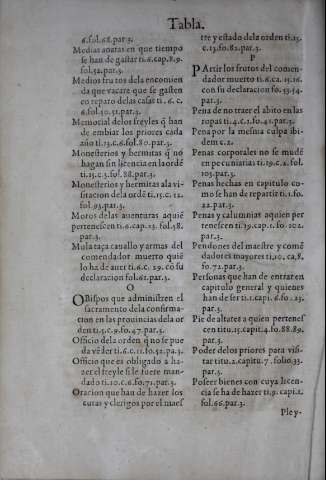 Tabla.
6.fol.68.par.3.
Medias anatas en que tiempo
se han de gastar ti.6.cap.8.9.
fol.52.par.3.
Medios frutos dela encomien
da que vacare que se gasten
en reparo delas casas ti.6.c.
6.fol.50.51.par.3.
Memorial delos freyles q̃ han
de embiar los priores cada
año ti.13.c.6.fol.80.par.3.
Monesterios y hermitas q̃ no
hagan sin licencia en la ordẽ
ti.15.c.3.fol.88.par.3.
Monesterios y hermitas ala vi-
sitacion dela ordẽ ti.15.c.12.
fol.95.par.3.
Moros delas auenturas aquiẽ
pertenescen ti.6.cap.23.fol.58.
par.3.
Mula taça cauallo y armas del
comendador muerto quiẽ
lo ha de auer ti.6.c.29.co su
declaracion fol.61.par.3.
O
OBispos que administren el
sacramento dela confirma-
cion en las prouincias dela or
den ti.5.c.9.fo.47.par.3.
Officio dela orden q̃ no se pue
da vẽder ti.6.c.11.fo.52.pa.3.
Officio que es obligado a ha-
zer el freyle si le fuere man-
dado ti.10.c.6.fo.71.par.3.
Oracion que han de hazer los
curas y clerigos por el maes
tre y estado dela orden ti.13.
c.13.fo.82.par.3.
P
PArtir los frutos del comen-
dador muerto ti.6.ca.15.16.
con su declaracion fo.53.54.
par.3.
Pena de no traer el abito en las
ropas ti.4.c.1.fo.41.par.3.
Pena por la mesma culpa ibi-
dem c.2.
Penas corporales no se mudẽ
en pecuniarias ti.19.c.2.fol.
103.par.3.
Penas hechas en capitulo co-
mo se han de repartir ti.1.fo.
22.par.3.
Penas y calumnias aquien per
tenescen ti.19.cap.1.fo.102.
par.3.
Pendones del maestre y comẽ
dadores mayores ti.10.ca.8.
fo.72.par.3.
Personas que han de entrar en
capitulo general y quienes
han de ser ti.1.capi.6.fo.23.
par.3.
Pie de altar es a quien pertenes
cen titu.15.capit.4.fo.88.89.
par.3.
Poder delos priores para visi-
tar titu.2.capitu.7.folio.33.
par.3.
Poseer bienes con cuya licen-
cia se ha de hazer ti.9.capi.1.
fol.66.par.3.
Pley-